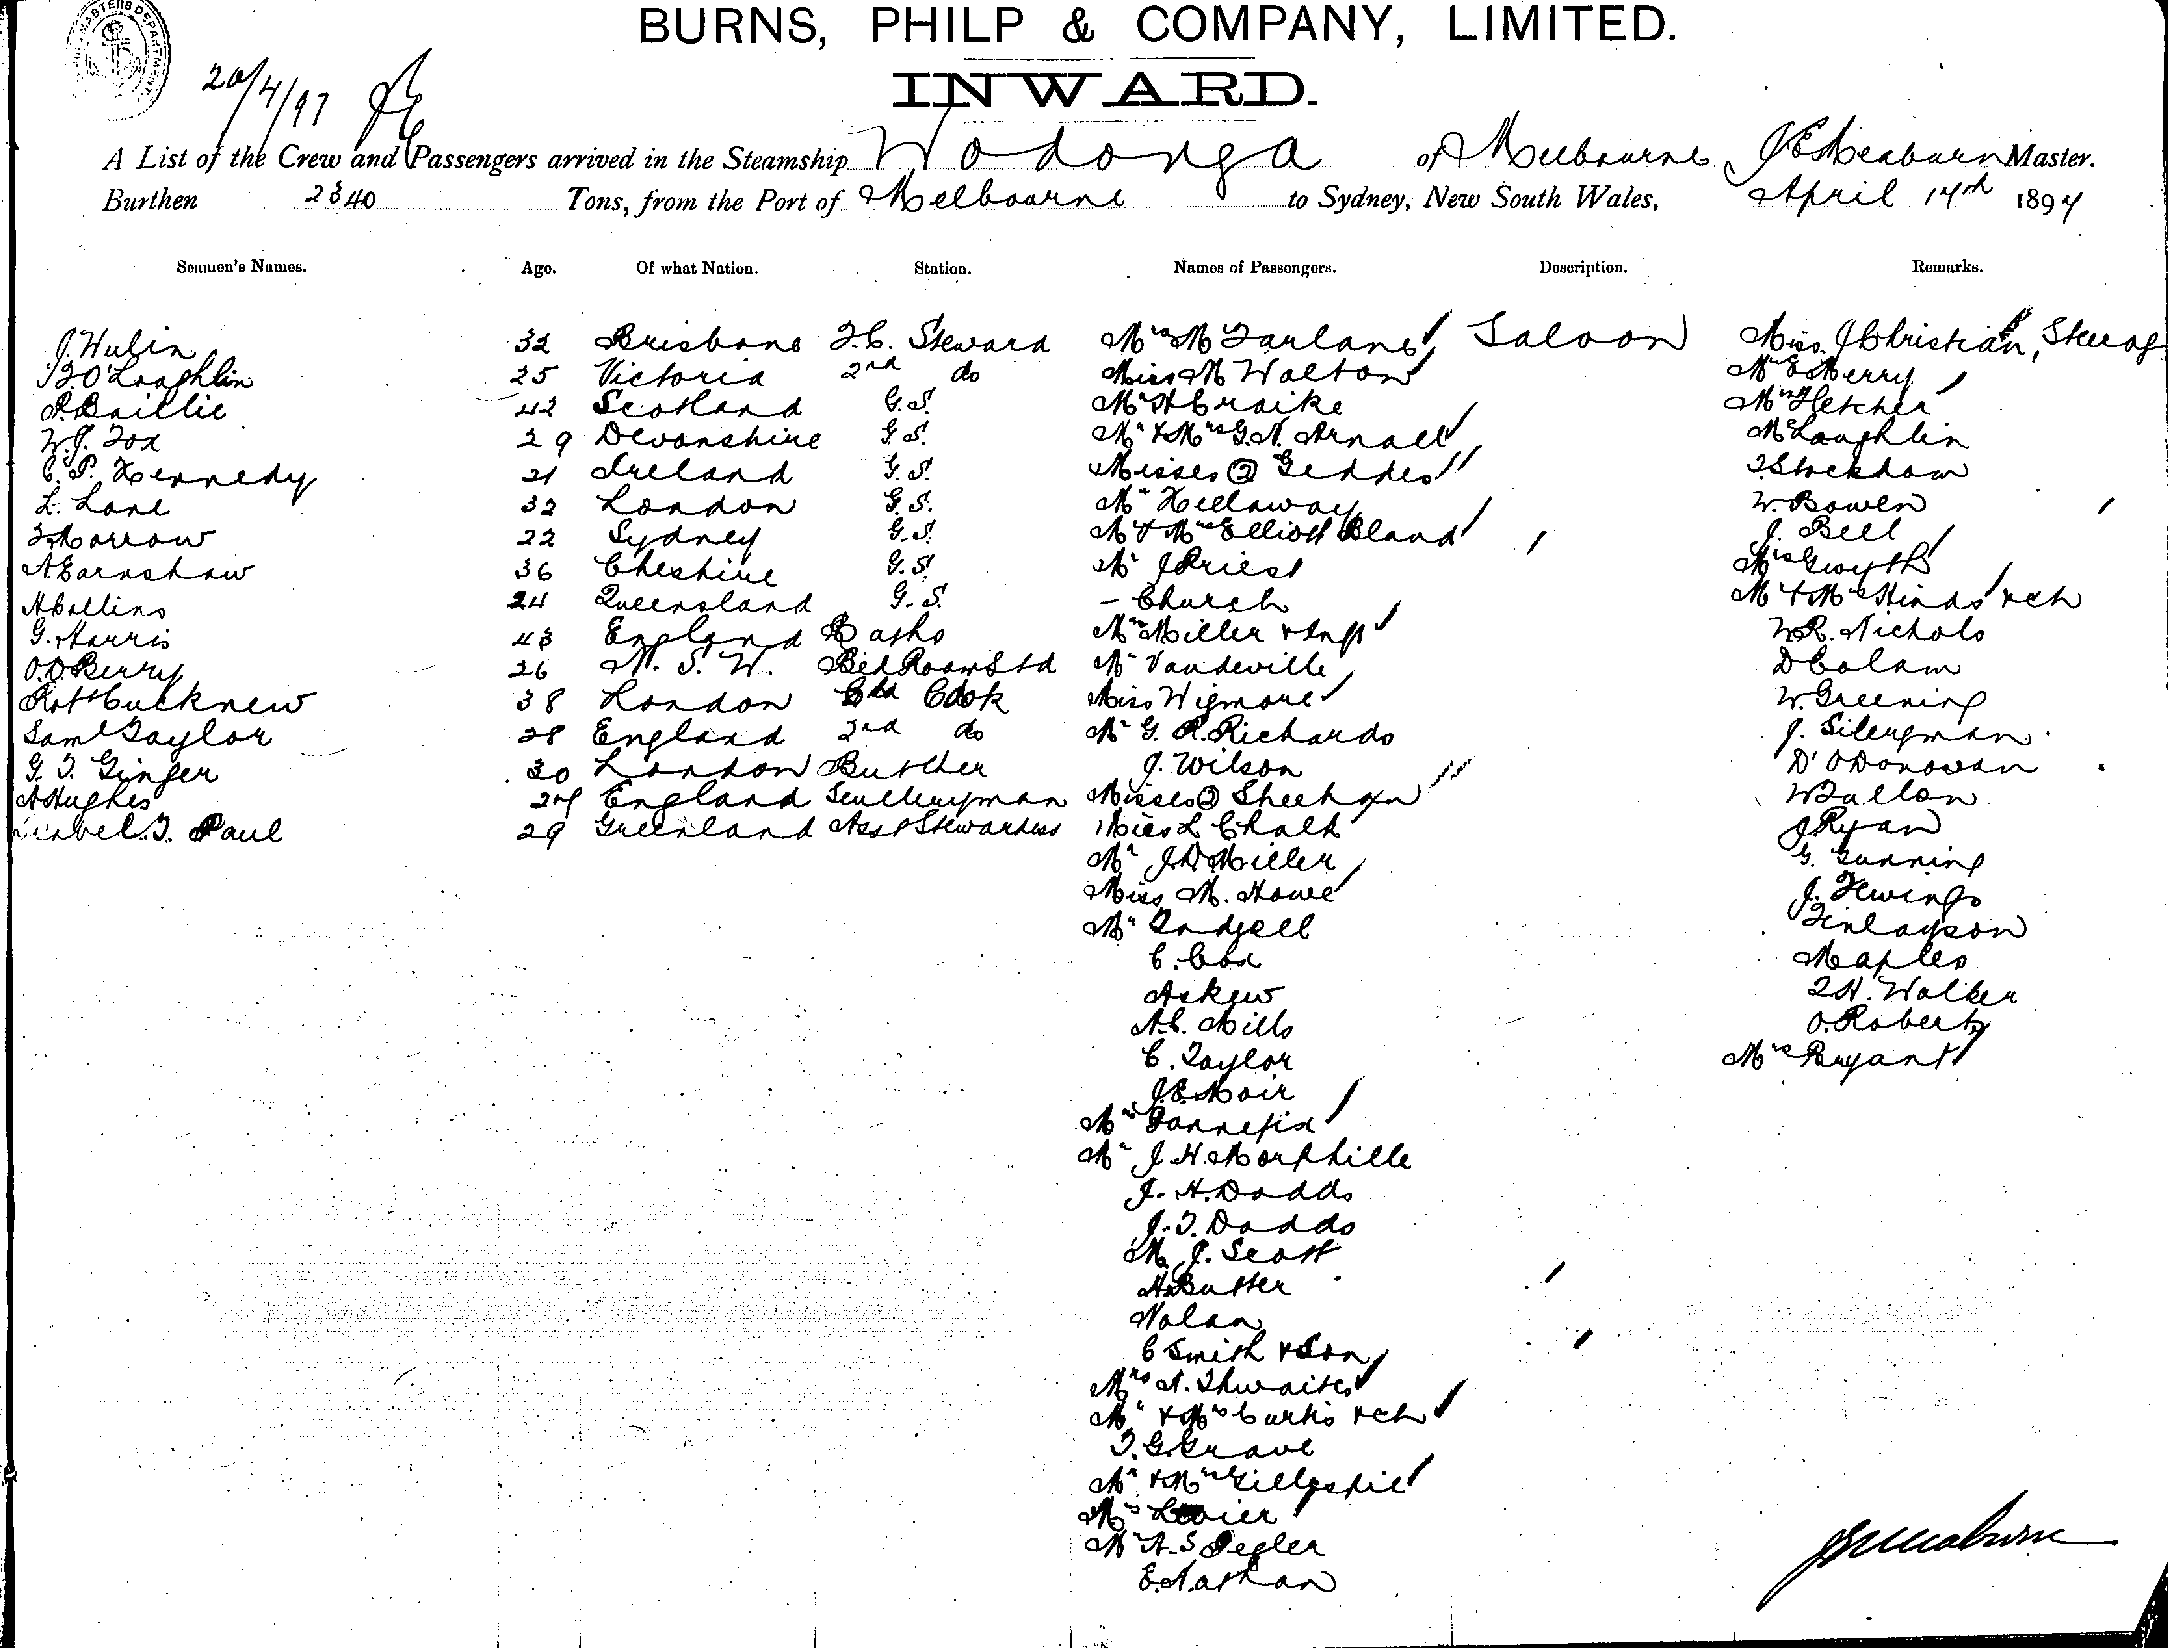 BURNS, PHILP & COMPANY, LIMITED.
INWARD.
20/4/97
A List of the Crew and Passengers arrived in the Steamship Wodonga of Melbourne Master.
Burthen 2340 Tons, from the Port of Melbourne to Sydney, New South Wales, April 17th 1897
Seamen's Names. Age. Of what Nation. Station. Names of Passengers. Description. Remarks.
J. Hulin 32 Brisbane F.C. Steward Mrs McFarlane Saloon Miss J Christian, Steerag
O'Loughlin 25 Victoria 2nd do Miss M Walton Mr E Merry
P. Baillie 42 Scotland G.S. Mr H Craike Mrs Fletcher
W.J. Fox 29 Devonshire G.S. Mr & Mrs G.N. Arnall McLaughlin
C. P. Kennedy 21 Ireland G.S. Misses (2) Geddes T Stockdam
L. Lane 32 London G.S. Mr Hellaway W. Bowen
T Morrow 22 Sydney G.S. Mr & Mrs Elliott Bland J. Bell
A Earnshaw 36 Cheshire G.S. Mr J Priest Mrs Gwyth
A Collins 24 Queensland G.S. - Church Mr & Mrs Hinds & ch
G. Harris 43 England Mrs Miller & Inft W.R. Nichols
O.D Berry 26 N. S. W. Bed Room Std Mr Vandeville D Colam
Robt Cucknew 38 London Cook Miss Wigmore W. Greening
Saml Taylor 28 England 2nd do Mr G. R. Richards J. Silergman
G. T. Ginger 30 London Butcher J. Wilson D' O'Donovan
A Hughes 29 England Sculleryman Misses (2) Sheehan W Dallon
Isabel. T. Paul 29 Greenland Asst Stewardess Miss L Chalk J Ryan
Mr J.D Miller G. Gunning
Miss M. Howe J. Fewings
Mr Tindsell Finlayson
C. Cox Maples
Askew T H. Walker
A.C. Mills O. Roberts
C. Taylor Mrs Bryant
J.E. Moir
Mrs Gannefix
Mr J. H. Morphille
J. H. Dodds
J. T. Dodds
M. J. Scott
H Butter
Nolan
C Smith & Son
Mrs A. Thwaites
Mr & Mrs Curtis & ch
T. G. Grave
Mr & Mrs Gillespie
Mrs Levier
Mr A. S Pegler
E. Nathan